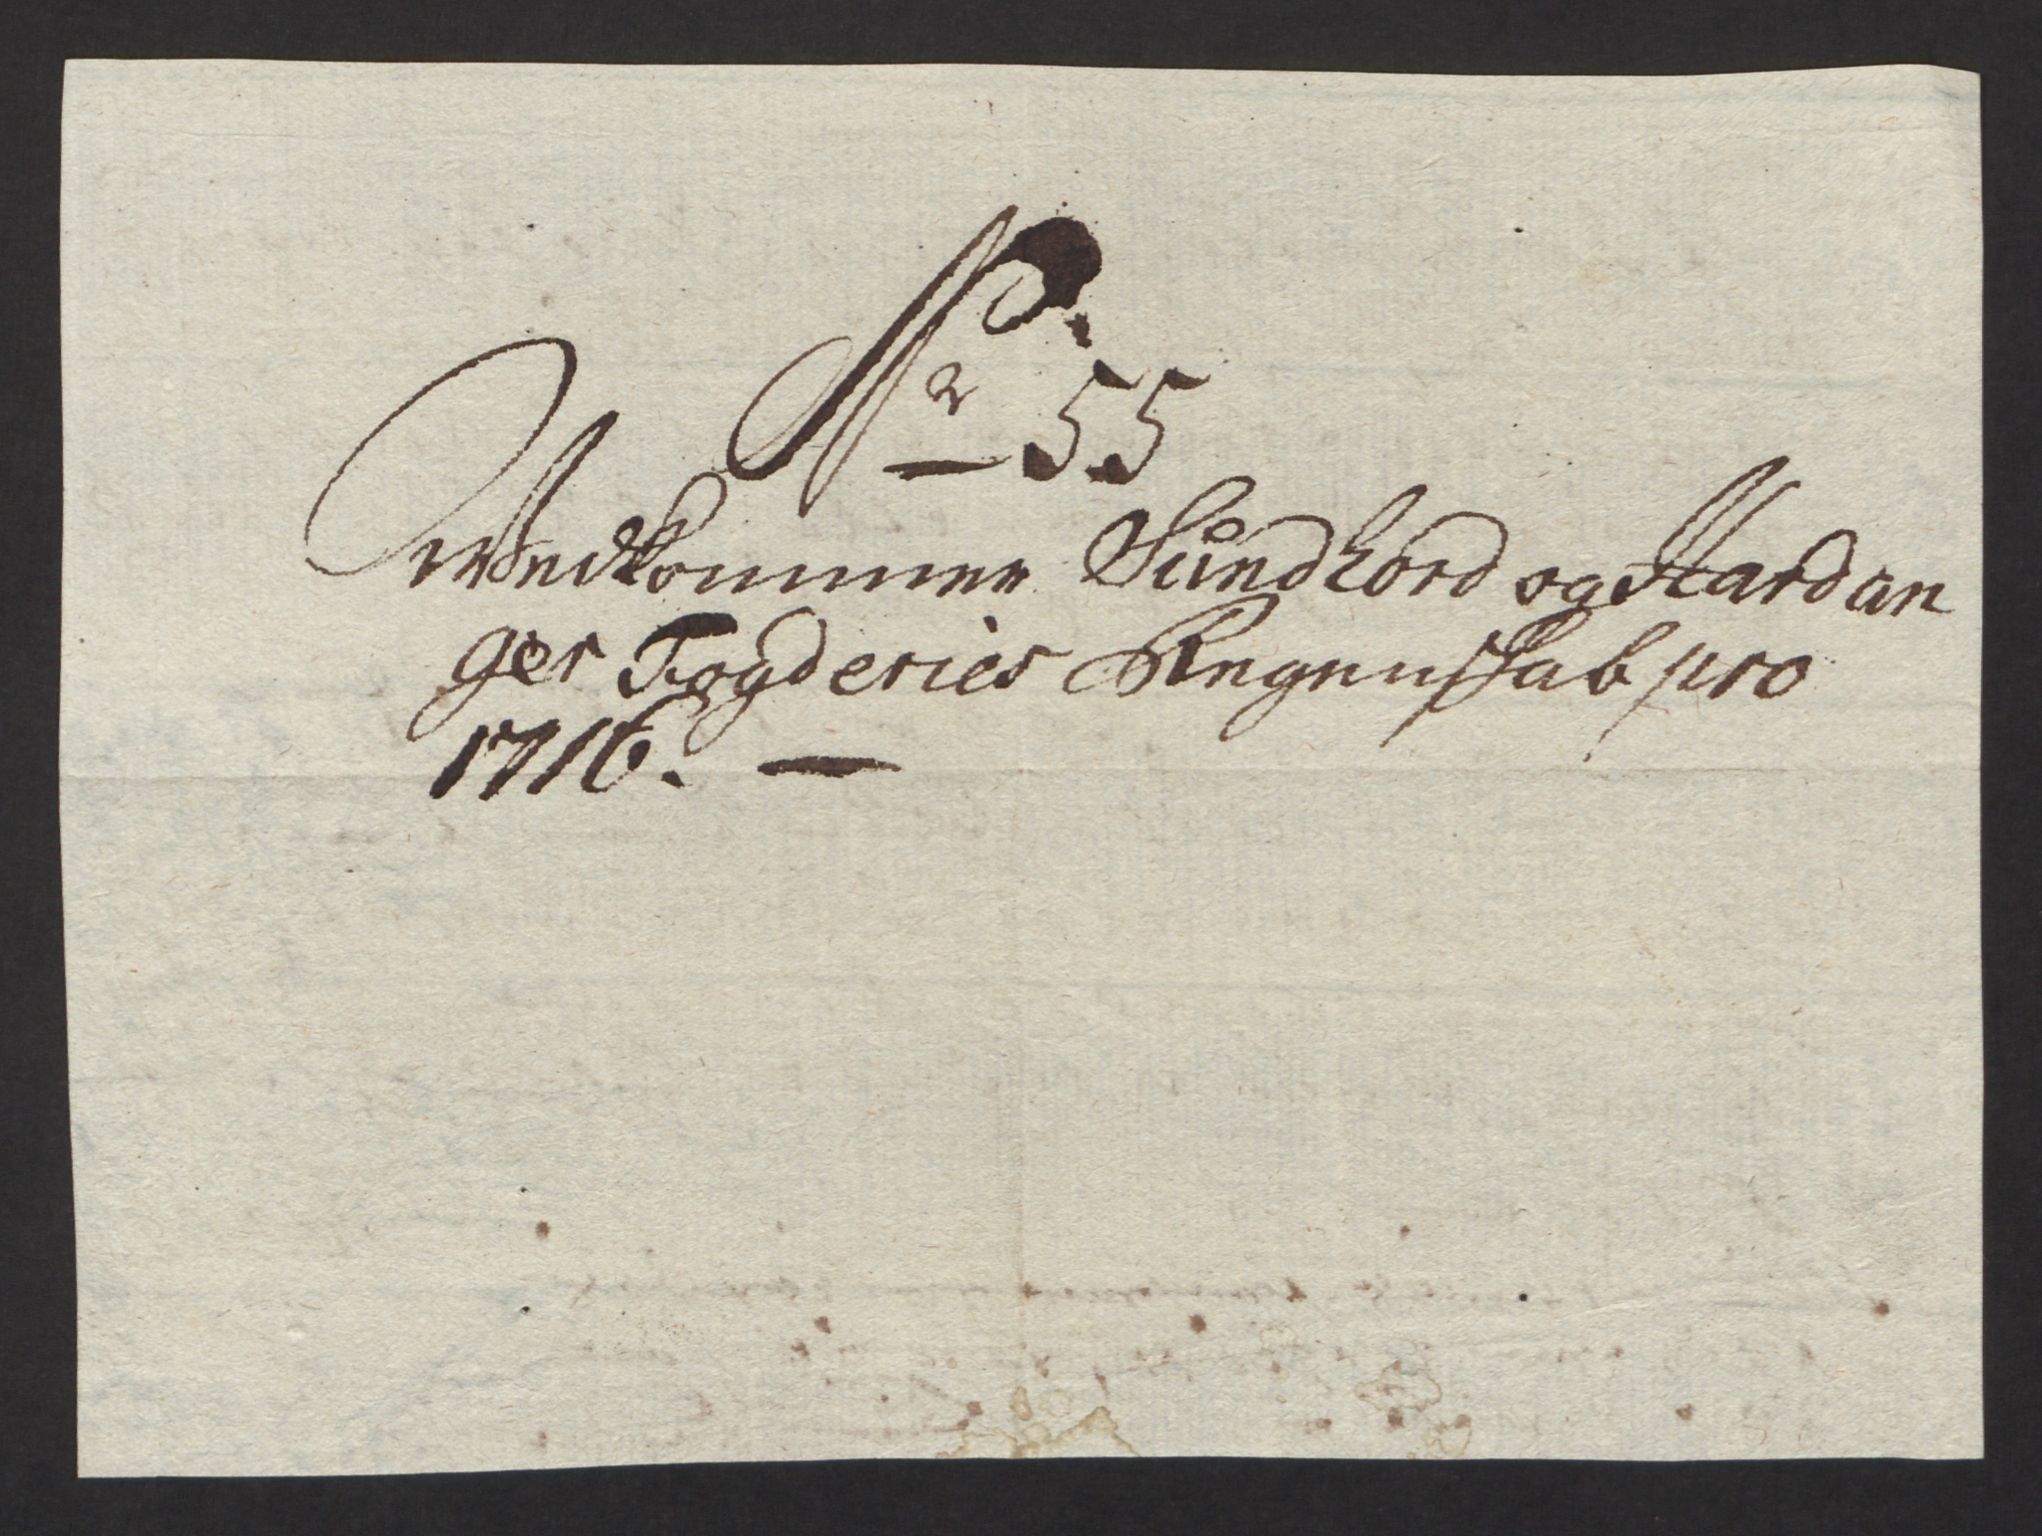 Nr 55
Wedkommer Sundhord og Hardan
ger Fogderies Regenskab pro
1716.